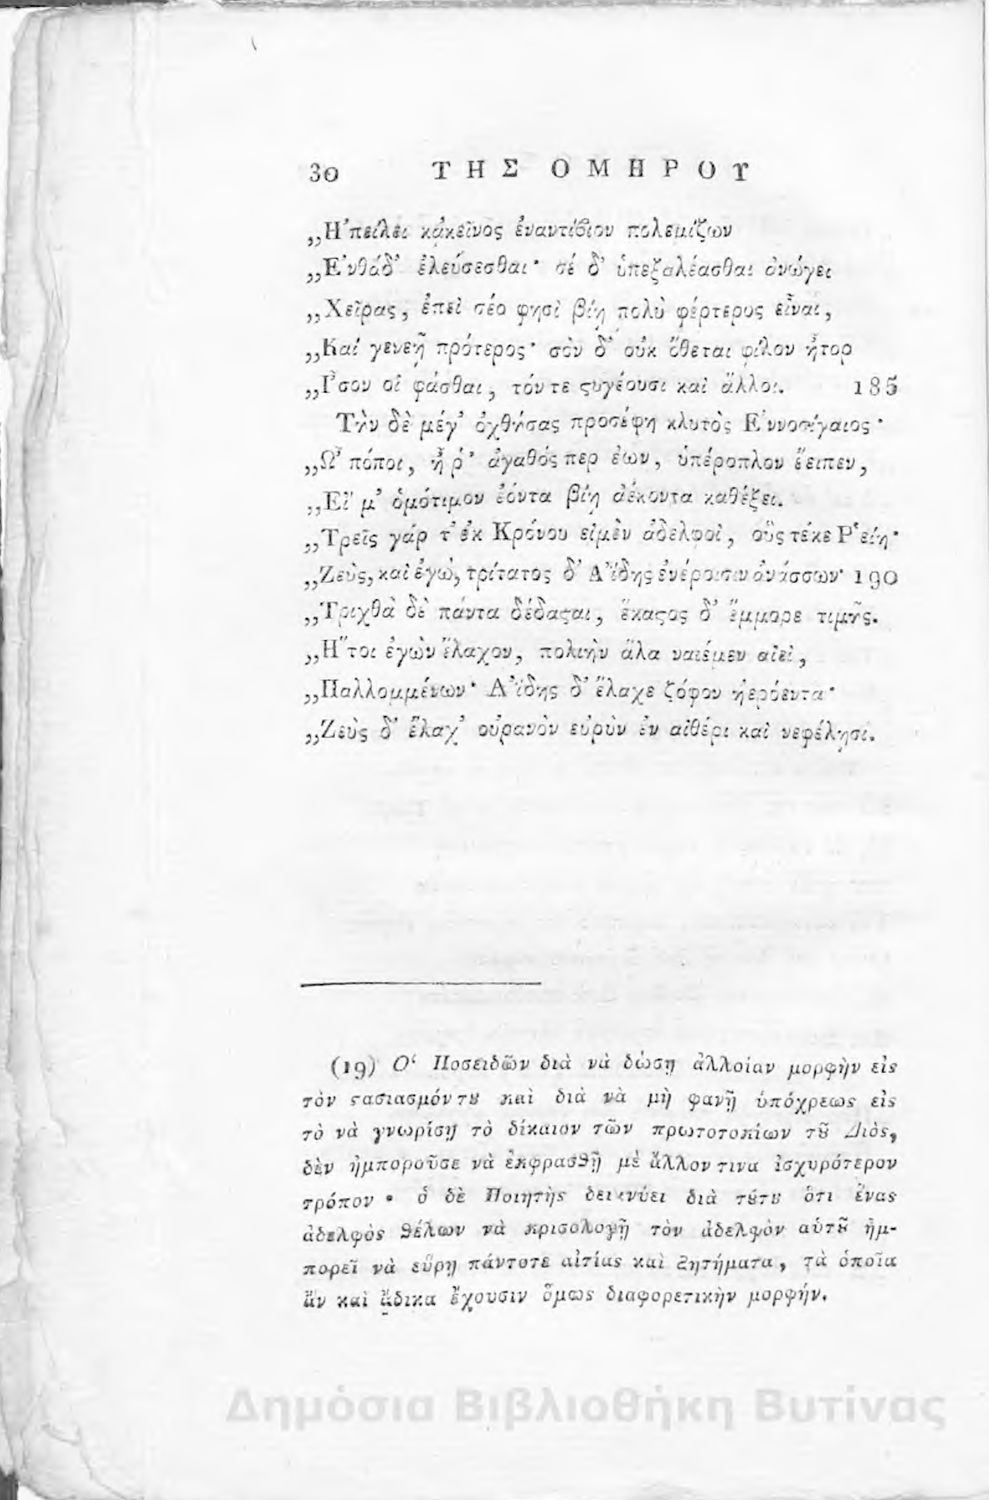 30 ΤΗΣ ΟΜΗΡΟΥ
,,Η᾿πείλει κἀκεῖνος ἐναντίβιον πολεμίζων
,,Ε᾿νθάδ᾿ ἐλεύσεσθαι· σέ δ᾿ ὑπεξαλέασθαι ἀνώγει
,,Χεῖρας, ἐπεὶ σέο φησὶ βίῃ πολὺ φέρτερος εἶναι,
,,Καί γενεῇ πρότερος· σὸν δ᾿ οὐκ ὄθεται φίλον ἦτορ
,,Γ᾿σον οἷ φάσθαι, τόντε ϛυγέουσι καὶ ἄλλοι. 185
Τὴν δὲ μέγ᾿ ὀχθήσας προσέφη κλυτὸς Ε᾿ννοσίγαιος·
,,Ω᾿ πόποι, ἦ ῥ᾿ ἀγαθός περ ἐων, ὑπέροπλον ἔειπεν,
,,Εἴ μ᾿ ὁμότιμον ἐόντα βίῃ ἀέκοντα καθέξει.
,,Τρεῖς γάρ τ᾿ ἐκ Κρόνου εἰμὲν ἀδελφοὶ, οὓς τέκε Ῥείη·
,,Ζεὺς, καὶ ἐγὼ, τρίτατος δ᾿ Ἀΐδης ἐνέροισιν ἀνάσσων· 190
,,Τριχθὰ δὲ πάντα δέδαϛαι, ἕκαϛος δ᾿ ἔμμορε τιμῆς.
,,Η῎τοι ἐγὼν ἔλαχον, πολιὴν ἅλα ναιέμεν αἰεὶ,
,,Παλλομμένων· Ἀΐδης δ᾿ ἔλαχε ζόφον ἠερόεντα·
,,Ζεὺς δ᾿ ἔλαχ᾿ οὐρανὸν εὐρὺν ἐν αἰθέρι καὶ νεφέλῃσι.
(19) Ο῾ Ποσειδῶν διὰ νὰ δώσῃ ἀλλοίαν μορφὴν εἰς
τὸν ϛασιασμόν τȣ καὶ διὰ νὰ μὴ φανῇ ὑπόχρεως εἰς
τὸ νὰ γνωρίσῃ τὸ δίκαιον τῶν πρωτοτοκίων τȣ͂ Διὸς,
δὲν ἠμποροῦσε νὰ ἐκφρασθῇ μὲ ἄλλον τινα ἰσχυρότερον
τρόπον· ὁ δὲ Ποιητὴς δεικνύει διὰ τȣ́τȣ ὅτι ἕνας
ἀδελφὸς θέλων νὰ κρισολογῇ τὸν ἀδελφὸν αὑτȣ͂ ἠμ-
πορεῖ νὰ εὕρῃ πάντοτε αἰτίας καὶ ζητήματα, τὰ ὁποῖα
ἂν καὶ ἄδικα ἔχουσιν ὅμως διαφορετικὴν μορφήν.
Δημόσια Βιβλιοθήκη Βυτίνας